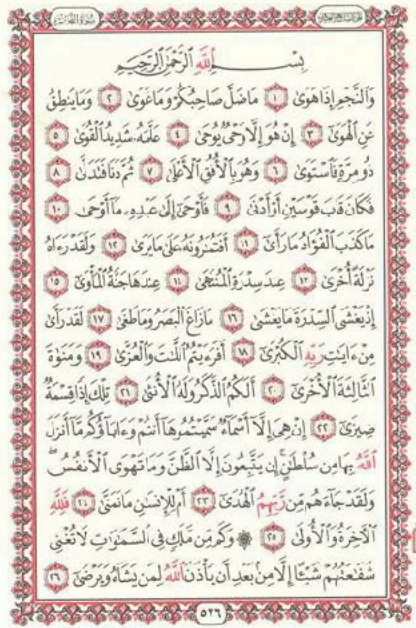 سُورَةُ النَّجْمِ الجُزْءُ السَّابِعُ وَالعِشْرُونَ
بِسْمِ اللَّهِ الرَّحْمَٰنِ الرَّحِيمِ
وَالنَّجْمِ إِذَا هَوَىٰ ١ مَا ضَلَّ صَاحِبُكُمْ وَمَا غَوَىٰ ٢ وَمَا يَنطِقُ
عَنِ الْهَوَىٰ ٣ إِنْ هُوَ إِلَّا وَحْيٌ يُوحَىٰ ٤ عَلَّمَهُ شَدِيدُ الْقُوَىٰ ٥
ذُو مِرَّةٍ فَاسْتَوَىٰ ٦ وَهُوَ بِالْأُفُقِ الْأَعْلَىٰ ٧ ثُمَّ دَنَا فَتَدَلَّىٰ ٨
فَكَانَ قَابَ قَوْسَيْنِ أَوْ أَدْنَىٰ ٩ فَأَوْحَىٰ إِلَىٰ عَبْدِهِ مَا أَوْحَىٰ ١٠
مَا كَذَبَ الْفُؤَادُ مَا رَأَىٰ ١١ أَفَتُمَارُونَهُ عَلَىٰ مَا يَرَىٰ ١٢ وَلَقَدْ رَءَاهُ
نَزْلَةً أُخْرَىٰ ١٣ عِندَ سِدْرَةِ الْمُنتَهَىٰ ١٤ عِندَهَا جَنَّةُ الْمَأْوَىٰ ١٥
إِذْ يَغْشَى السِّدْرَةَ مَا يَغْشَىٰ ١٦ مَا زَاغَ الْبَصَرُ وَمَا طَغَىٰ ١٧ لَقَدْ رَأَىٰ
مِنْ ءَايَٰتِ رَبِّهِ الْكُبْرَىٰ ١٨ أَفَرَءَيْتُمُ اللَّٰتَ وَالْعُزَّىٰ ١٩ وَمَنَوٰةَ
الثَّالِثَةَ الْأُخْرَىٰ ٢٠ أَلَكُمُ الذَّكَرُ وَلَهُ الْأُنثَىٰ ٢١ تِلْكَ إِذًا قِسْمَةٌ
ضِيزَىٰ ٢٢ إِنْ هِيَ إِلَّا أَسْمَاءٌ سَمَّيْتُمُوهَا أَنتُمْ وَءَابَاؤُكُم مَّا أَنزَلَ
اللَّهُ بِهَا مِن سُلْطَٰنٍ ۚ إِن يَتَّبِعُونَ إِلَّا الظَّنَّ وَمَا تَهْوَى الْأَنفُسُ ۖ
وَلَقَدْ جَاءَهُم مِّن رَّبِّهِمُ الْهُدَىٰ ٢٣ أَمْ لِلْإِنسَٰنِ مَا تَمَنَّىٰ ٢٤ فَلِلَّهِ
الْآخِرَةُ وَالْأُولَىٰ ٢٥ ۞ وَكَم مِّن مَّلَكٍ فِي السَّمَٰوَٰتِ لَا تُغْنِي
شَفَٰعَتُهُمْ شَيْئًا إِلَّا مِن بَعْدِ أَن يَأْذَنَ اللَّهُ لِمَن يَشَاءُ وَيَرْضَىٰ ٢٦
٥٢٦